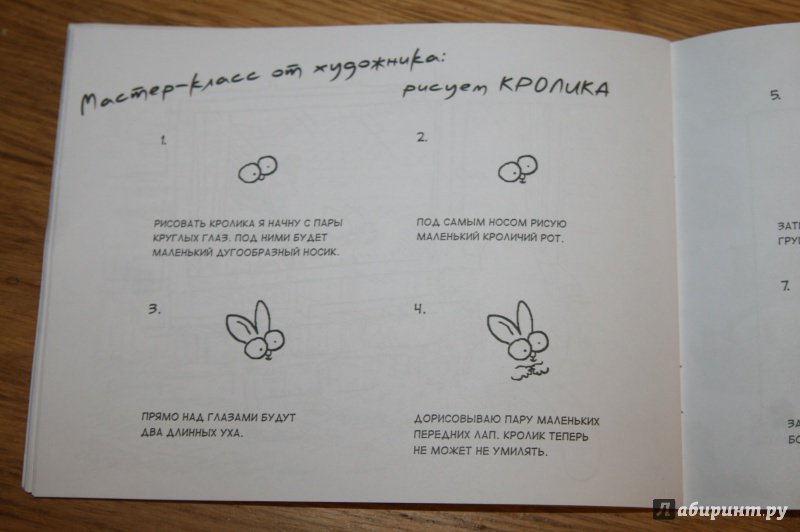 Мастер-класс от художника:
рисуем КРОЛИКА
1.
РИСОВАТЬ КРОЛИКА Я НАЧНУ С ПАРЫ
КРУГЛЫХ ГЛАЗ. ПОД НИМИ БУДЕТ
МАЛЕНЬКИЙ ДУГООБРАЗНЫЙ НОСИК.
2.
ПОД САМЫМ НОСОМ РИСУЮ
МАЛЕНЬКИЙ КРОЛИЧИЙ РОТ.
3.
ПРЯМО НАД ГЛАЗАМИ БУДУТ
ДВА ДЛИННЫХ УХА.
4.
ДОРИСОВЫВАЮ ПАРУ МАЛЕНЬКИХ
ПЕРЕДНИХ ЛАП. КРОЛИК ТЕПЕРЬ
НЕ МОЖЕТ НЕ УМИЛЯТЬ.
5.
7.
Лабиринт.ру